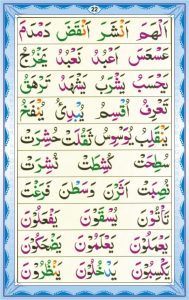 22
اَلْهَمَ اَنْشَرَ اَنْقَضَ دَمْدَمَ
عَسْعَسَ اَعْبُدُ نَعْبُدُ يَخْرُجُ
يَحْسَبُ يَشْرَبُ يَشْهَدُ تَرْهَقُ
تَعْرِفُ اُقْسِمُ يُبْدِئُ يُنْفَخُ
يَنْقَلِبُ يُوَسْوِسُ ثَقُلَتْ حُشِرَتْ
سُطِحَتْ كُشِطَتْ نُشِرَتْ
نُصِبَتْ اَثَرْنَ وَسَطْنَ فَرَغْتَ
تَأْتُوْنَ يُسْقَوْنَ يَفْعَلُوْنَ
يَعْمَلُوْنَ يَعْلَمُوْنَ يَضْحَكُوْنَ
يَكْسِبُوْنَ يَدْخُلُوْنَ يَنْظُرُوْنَ